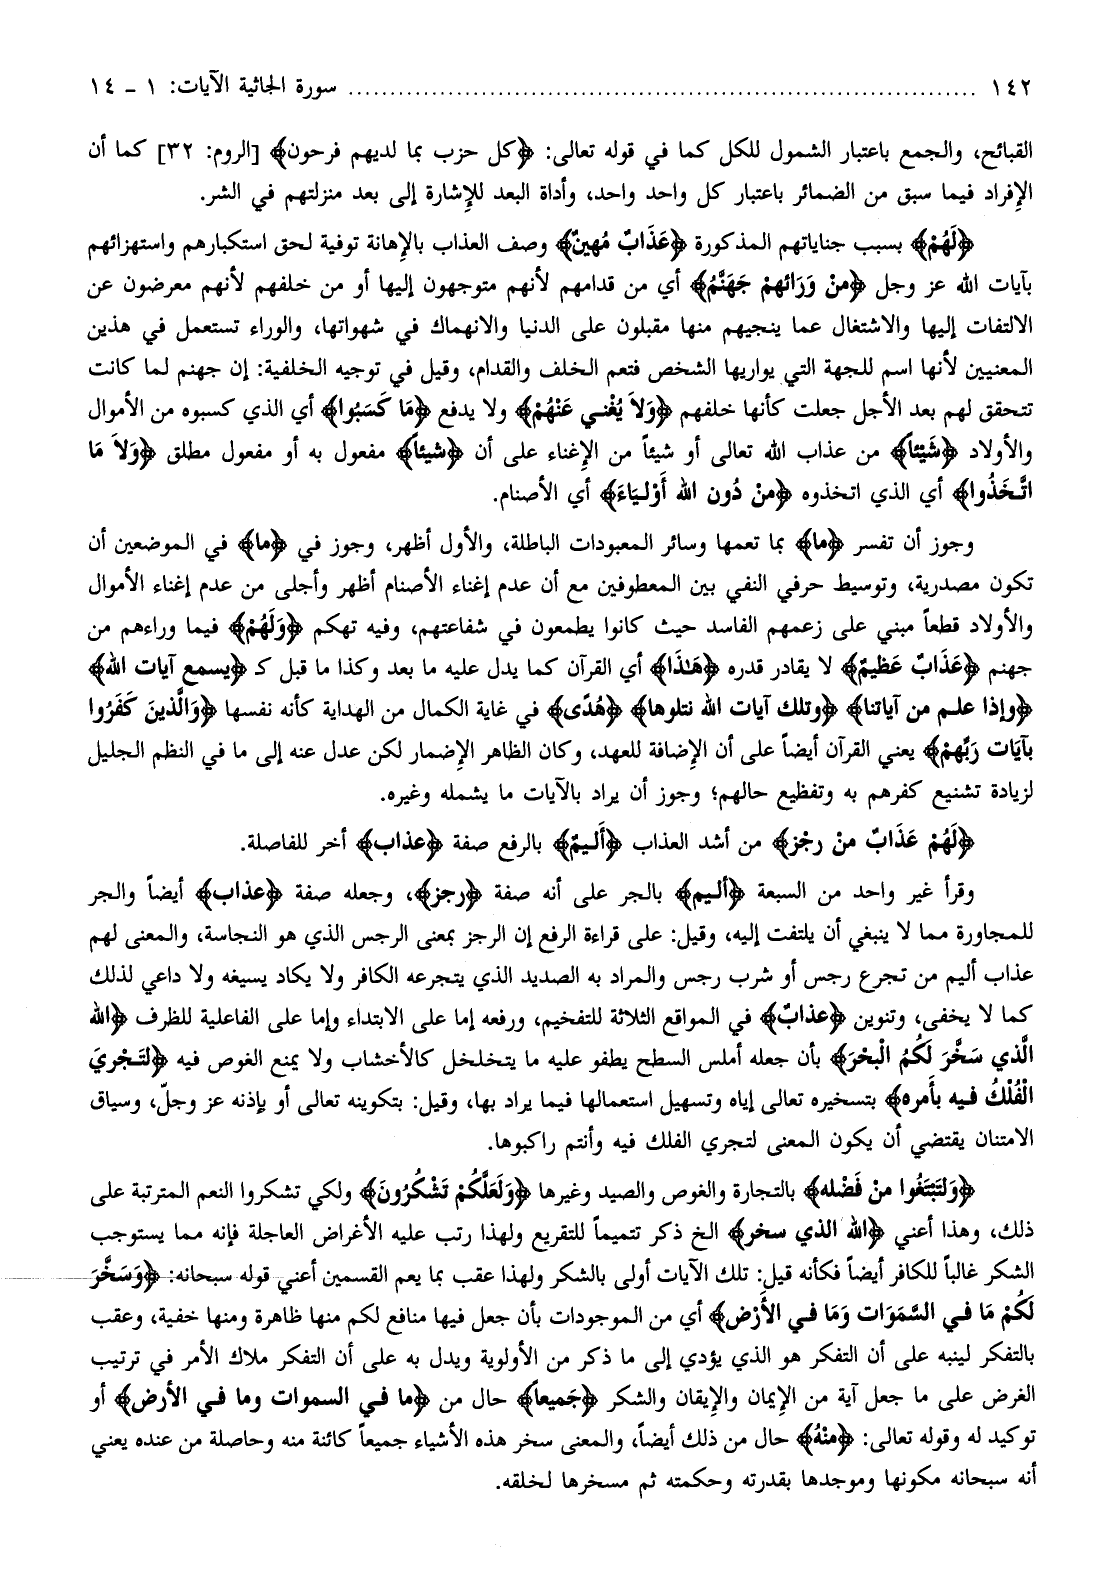 ١٤٢ ........................................................................... سورة الجاثية الآيات: ١ - ١٤
القبائح، والجمع باعتبار الشمول للكل كما في قوله تعالى: ﴿كل حزب بما لديهم فرحون﴾ [الروم: ٣٢] كما أن
الإِفراد فيما سبق من الضمائر باعتبار كل واحد واحد، وأداة البعد للإِشارة إلى بعد منزلتهم في الشر.
﴿لَهُمْ﴾ بسبب جناياتهم المذكورة ﴿عَذَابٌ مُهينٌ﴾ وصف العذاب بالإِهانة توفية لحق استكبارهم واستهزائهم
بآيات الله عز وجل ﴿مِنْ وَرَائهمْ جَهَنَّمُ﴾ أي من قدامهم لأنهم متوجهون إليها أو من خلفهم لأنهم معرضون عن
الالتفات إليها والاشتغال عما ينجيهم منها مقبلون على الدنيا والانهماك في شهواتها، والوراء تستعمل في هذين
المعنيين لأنها اسم للجهة التي يواريها الشخص فتعم الخلف والقدام، وقيل في توجيه الخلفية: إن جهنم لما كانت
تتحقق لهم بعد الأجل جعلت كأنها خلفهم ﴿وَلاَ يُغْني عَنْهُمْ﴾ ولا يدفع ﴿مَا كَسَبُوا﴾ أي الذي كسبوه من الأموال
والأولاد ﴿شَيْئاً﴾ من عذاب الله تعالى أو شيئاً من الإِغناء على أن ﴿شيئاً﴾ مفعول به أو مفعول مطلق ﴿وَلاَ مَا
اتَّخَذُوا﴾ أي الذي اتخذوه ﴿منْ دُون الله أَوْليَاءَ﴾ أي الأصنام.
وجوز أن تفسر ﴿ما﴾ بما تعمها وسائر المعبودات الباطلة، والأول أظهر، وجوز في ﴿ما﴾ في الموضعين أن
تكون مصدرية، وتوسيط حرفي النفي بين المعطوفين مع أن عدم إغناء الأصنام أظهر وأجلى من عدم إغناء الأموال
والأولاد قطعاً مبني على زعمهم الفاسد حيث كانوا يطمعون في شفاعتهم، وفيه تهكم ﴿وَلَهُمْ﴾ فيما وراءهم من
جهنم ﴿عَذَابٌ عَظيمٌ﴾ لا يقادر قدره ﴿هَـٰذَا﴾ أي القرآن كما يدل عليه ما بعد وكذا ما قبل كـ ﴿يسمع آيات الله﴾
﴿وإذا علم من آياتنا﴾ ﴿وتلك آيات الله نتلوها﴾ ﴿هُدًى﴾ في غاية الكمال من الهداية كأنه نفسها ﴿وَالَّذينَ كَفَرُوا
بآيَات رَبِّهمْ﴾ يعني القرآن أيضاً على أن الإِضافة للعهد، وكان الظاهر الإِضمار لكن عدل عنه إلى ما في النظم الجليل
لزيادة تشنيع كفرهم به وتفظيع حالهم؛ وجوز أن يراد بالآيات ما يشمله وغيره.
﴿لَهُمْ عَذَابٌ منْ رجْز﴾ من أشد العذاب ﴿أَليمٌ﴾ بالرفع صفة ﴿عذاب﴾ أخر للفاصلة.
وقرأ غير واحد من السبعة ﴿أليم﴾ بالجر على أنه صفة ﴿رجز﴾، وجعله صفة ﴿عذاب﴾ أيضاً والجر
للمجاورة مما لا ينبغي أن يلتفت إليه، وقيل: على قراءة الرفع إن الرجز بمعنى الرجس الذي هو النجاسة، والمعنى لهم
عذاب أليم من تجرع رجس أو شرب رجس والمراد به الصديد الذي يتجرعه الكافر ولا يكاد يسيغه ولا داعي لذلك
كما لا يخفى، وتنوين ﴿عذابٌ﴾ في المواقع الثلاثة للتفخيم، ورفعه إما على الابتداء وإما على الفاعلية للظرف ﴿الله
الَّذي سَخَّرَ لَكُمُ الْبحْرَ﴾ بأن جعله أملس السطح يطفو عليه ما يتخلخل كالأخشاب ولا يمنع الغوص فيه ﴿لتَجْريَ
الْفُلْكُ فيه بأَمره﴾ بتسخيره تعالى إياه وتسهيل استعمالها فيما يراد بها، وقيل: بتكوينه تعالى أو بإذنه عز وجلّ، وسياق
الامتنان يقتضي أن يكون المعنى لتجري الفلك فيه وأنتم راكبوها.
﴿وَلتَبْتَغُوا منْ فَضْله﴾ بالتجارة والغوص والصيد وغيرها ﴿وَلَعَلَّكُمْ تَشْكُرُونَ﴾ ولكي تشكروا النعم المترتبة على
ذلك، وهذا أعني ﴿الله الذي سخر﴾ الخ ذكر تتميماً للتقريع ولهذا رتب عليه الأغراض العاجلة فإنه مما يستوجب
الشكر غالباً للكافر أيضاً فكأنه قيل: تلك الآيات أولى بالشكر ولهذا عقب بما يعم القسمين أعني قوله سبحانه: ﴿وَسَخَّرَ
لَكُمْ مَا في السَّمَوَات وَمَا في الأَرْض﴾ أي من الموجودات بأن جعل فيها منافع لكم منها ظاهرة ومنها خفية، وعقب
بالتفكر لينبه على أن التفكر هو الذي يؤدي إلى ما ذكر من الأولوية ويدل به على أن التفكر ملاك الأمر في ترتيب
الغرض على ما جعل آية من الإِيمان والإِيقان والشكر ﴿جَميعاً﴾ حال من ﴿ما في السموات وما في الأرض﴾ أو
توكيد له وقوله تعالى: ﴿منْهُ﴾ حال من ذلك أيضاً، والمعنى سخر هذه الأشياء جميعاً كائنة منه وحاصلة من عنده يعني
أنه سبحانه مكونها وموجدها بقدرته وحكمته ثم مسخرها لخلقه.